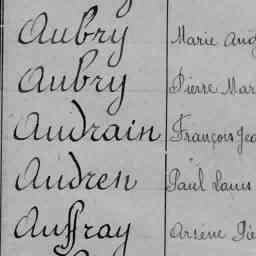 Aubry Marie
Aubry Pierre
Audrain François
Audren Paul Louis
Auffray Arsène